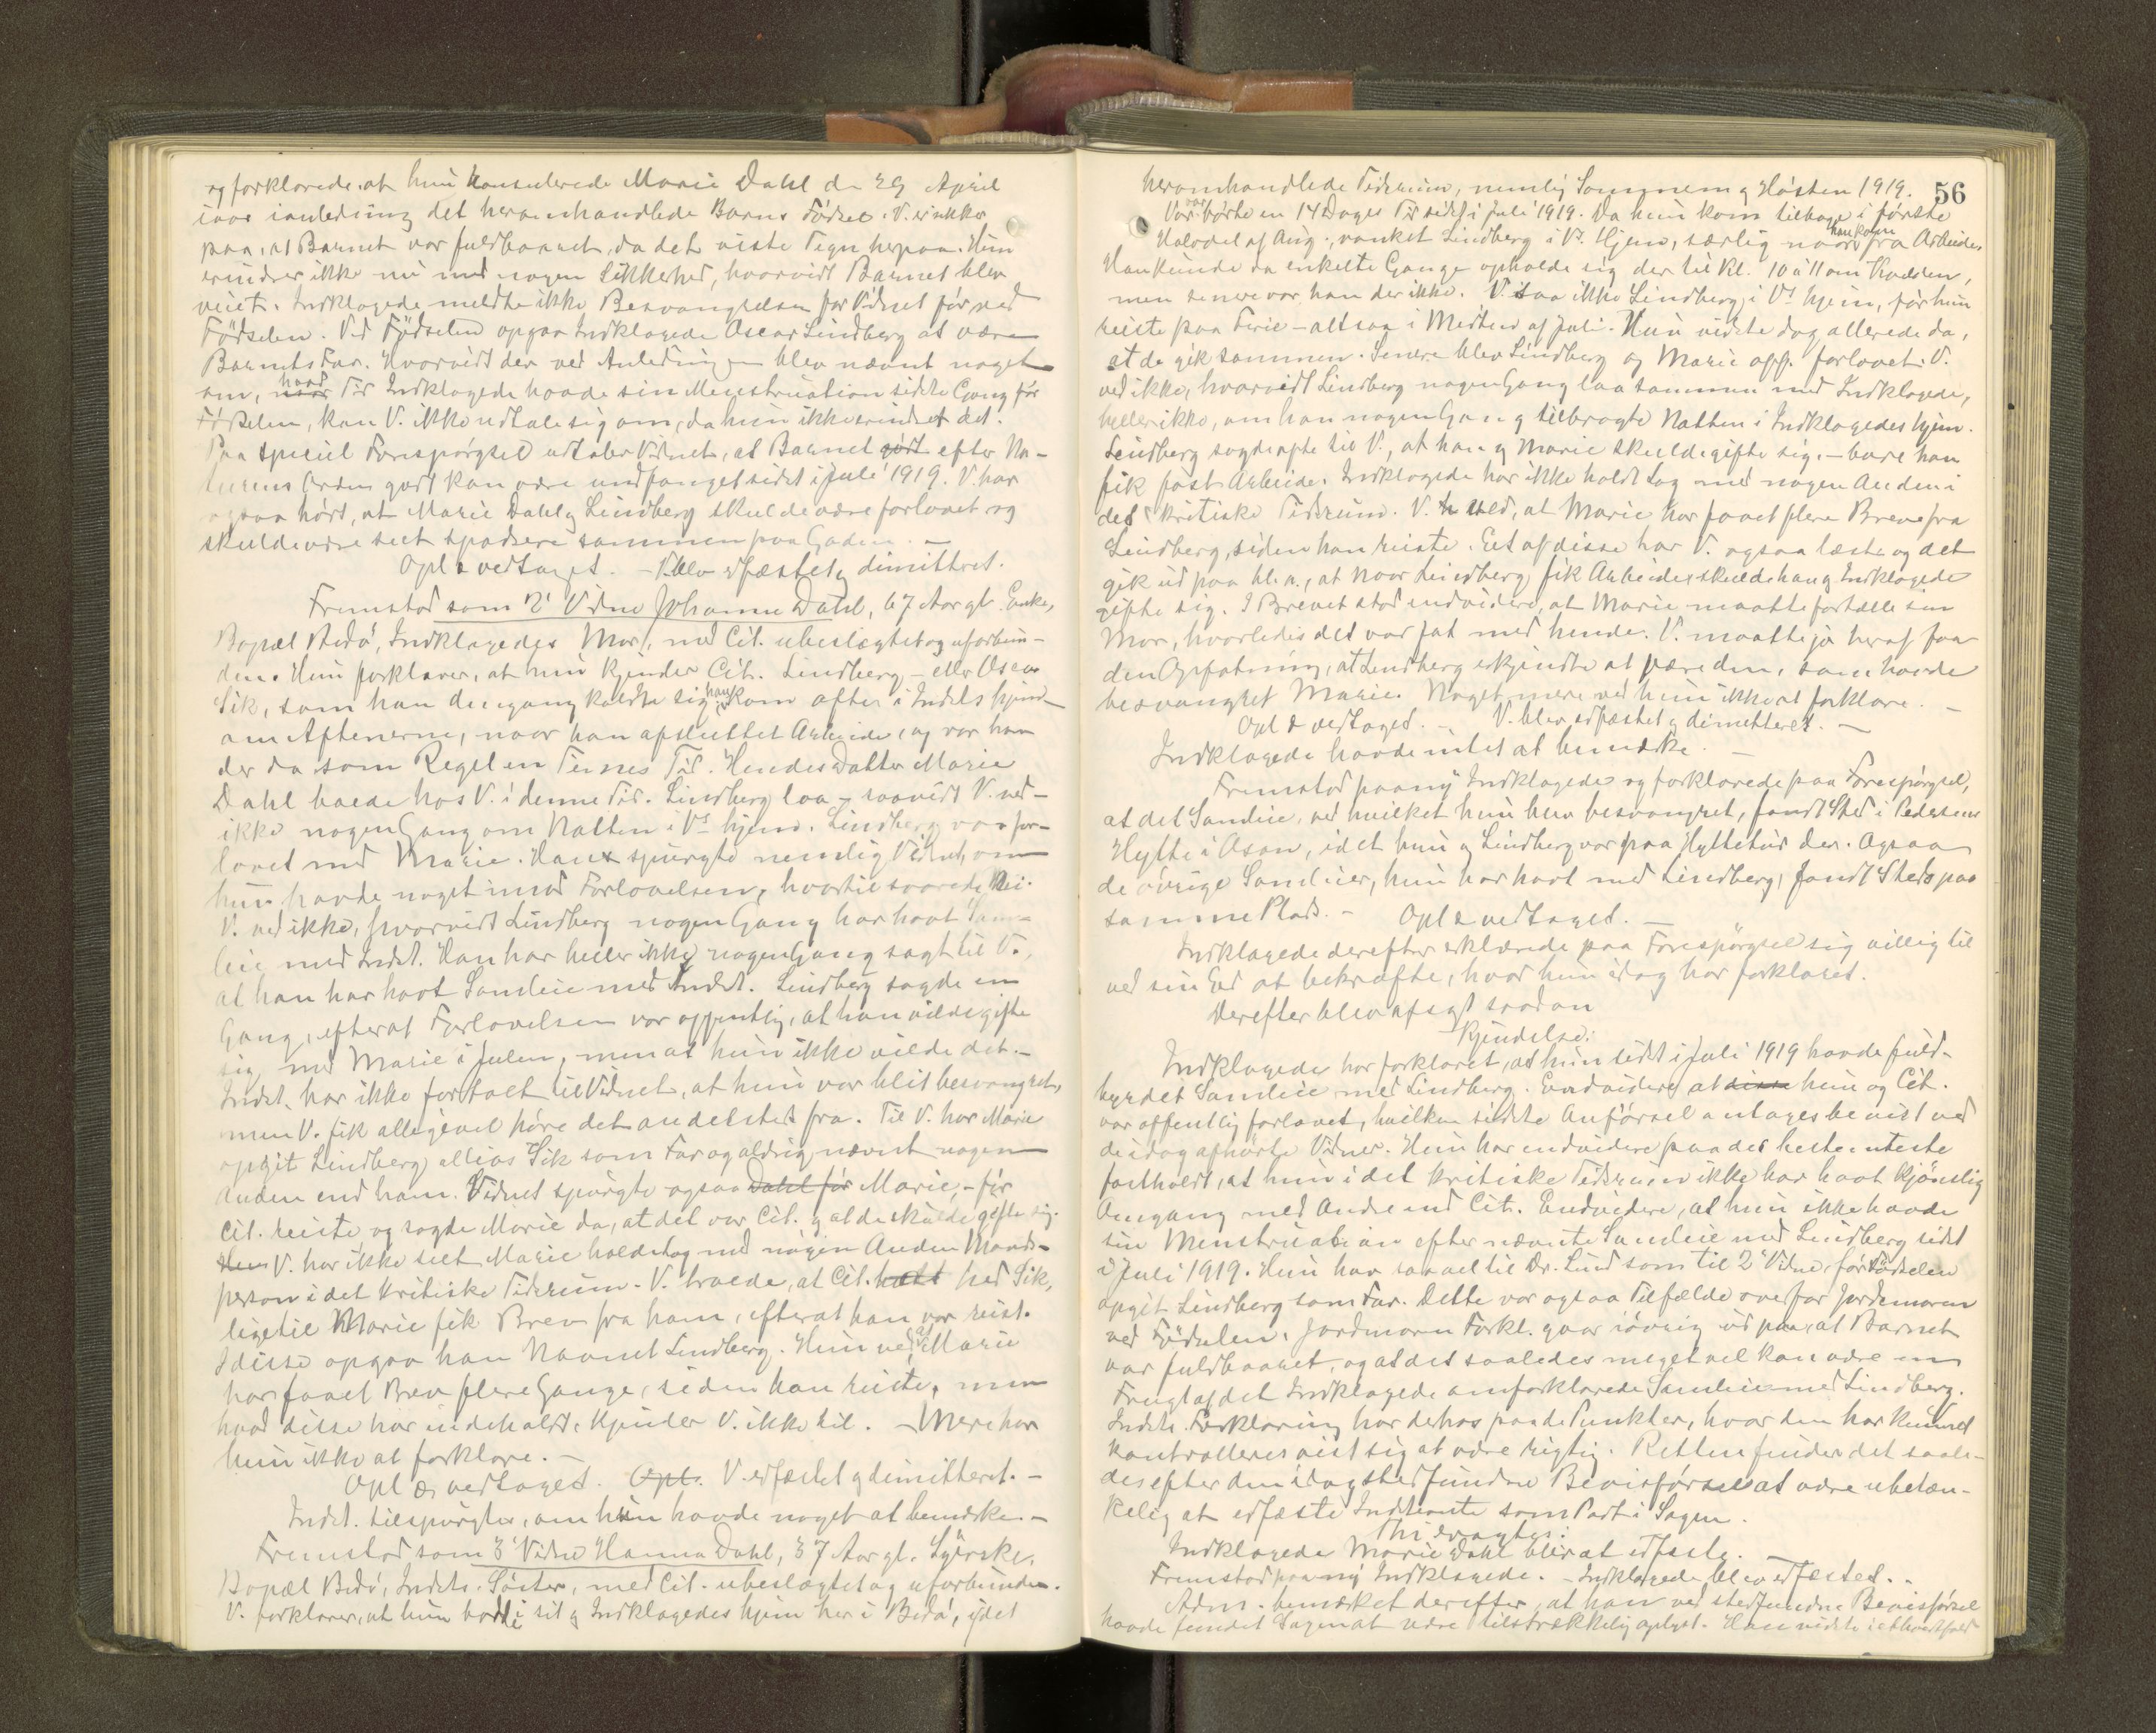 og forklarede, at hun konsulerede Marie Dahl d. 29 April
iaar i anledning det heromhandlede Barns Fødsel. V. er sikker
paa, at Barnet var fuldbaaret, da det viste Tegn herpaa. Hun
erindrer ikke nu med nogen Sikkerhed, hvorvidt Barnet blev
veiet. Indklagede meldte ikke Besvangrelsen for Vidnet før ved
Fødselen. Ved Fødselen opgav Indklagede Oscar Lindberg at være
Barnets Far. Hvorvidt der ved Anledningen blev nævnt noget
om, naar hvad Tid Indklagede havde sin Menstruation sidste Gang før
Fødselen, kan V. ikke udtale sig om, da hun ikke erindret det.
Paa speciel Forespørgsel udtaler Vidnet, at Barnet godt efter Na-
turens Orden godt kan være undfanget sidst i Juli 1919. V. har
ogsaa hørt, at Marie Dahl og Lindberg skulde være forlovet og
skulde være seet spadsere sammen paa Gaden. —
Opl & vedtaget. — Blev edfæstet og dimitteret.
Fremstod som 2' Vidne Johanne Dahl, 67 Aar gl. Enke,
Bopæl Bodø, Indklagedes Mor, med Cit. ubeslægtet og uforbun-
den. Hun forklarer, at hun kjender Cit. Lindberg – eller Oscar
Sik, som han dengang kaldte sig; han kom ofte i Indkls hjem
om Aftenerne, naar han afsluttet Arbeide, og var han
der da som Regel en Times Tid. Hendes Datter Marie
Dahl boede hos V. i denne Tid. Lindberg laa – saavidt V. ved –
ikke nogen Gang om Natten i Vs hjem. Lindberg var for-
lovet med Marie. Han spurgte nemlig Vidnet, om
hun havde noget imod Forlovelsen, hvortil svarede Nei.
V. ved ikke, hvorvidt Lindberg nogen Gang har havt Sam-
leie med Indkl. Han har heller ikke nogen Gang sagt til V.,
at han har havt Samleie med Indkl. Lindberg sagde en
Gang, efterat Forlovelsen var offentlig, at han vilde gifte
sig med Marie i Julen, men at hun ikke vilde det. –
Indkl. har ikke fortalt til Vidnet, at hun var blit besvangret,
men V. fik alligevel høre det andetsteds fra. Til V. har Marie
opgit Lindberg alias Sik som Far og aldrig nævnt nogen
anden end ham. Vidnet spurgte ogsaa Dahl før Marie, – før
Cit. reiste og sagde Marie da, at det var Cit. og at de skulde gifte sig.
Hun V. har ikke seet Marie holde Lag med nogen Anden Mands-
person i det kritiske Tidsrum. V. troede, at Cit. hedt hed Sik,
ligetil Marie fik Brev fra ham, efterat han var reist.
I disse opgav han Navnet Lindberg. Hun ved, at Marie
har faaet Brev flere Gange, siden han reiste, men
hvad disse har indeholdt, kjender V. ikke til. – Mere har
hun ikke at forklare. –
Opl & vedtaget. Opl. V. edfæstet og dimitteret. –
Indkl. tilspurgtes, om hun havde noget at bemærke. –
Fremstod som 3' Vidne Hanna Dahl, 37 Aar gl. Syerske,
Bopæl Bodø, Indkls. Søster, med Cit. ubeslægtet og uforbunden.
V. forklarer, at hun bodde i sit og Indklagedes hjem her i Bodø, i det
56
heromhandlede Tidsrum, nemlig Sommeren og Høsten 1919.
V. var borte en 14 Dages Tid sidst i Juli 1919. Da hun kom tilbage i første
Halvdel af Aug., vanket Lindberg i Vs. Hjem, særlig naar han kom fra Arbeide.
Han kunde en enkelte Gange opholde sig der til Kl. 10 à 11 om Kvelden,
men senere var han der ikke. V. saa ikke Lindberg i Vs hjem, før hun
reiste paa Ferie – altsaa i Midten af Juli. Hun vidste dog allerede da,
at de gik sammen. Senere blev Lindberg og Marie off. forlovet. V.
ved ikke, hvorvidt Lindberg nogen Gang laa sammen med Indklagede,
heller ikke, om han nogen Gang tilbragte Natten i Indklagedes hjem.
Lindberg sagde ofte til V., at han og Marie skulde gifte sig, – bare han
fik fast Arbeide. Indklagede har ikke holdt Lag med nogen Anden i
det kritiske Tidsrum. V. ved, at Marie har faaet flere Breve fra
Lindberg, siden han reiste. Et af disse har V. ogsaa læst og det
gik ud paa bl. a., at naar Lindberg fik Arbeide, skulde han og Indklagede
gifte sig. I Brevet stod endvidere, at Marie maatte fortælle sin
Mor, hvorledes det var fat med hende. V. maatte jo heraf faa
den Opfatning, at Lindberg erkjendte at være den, som havde
besvangret Marie. Noget mere ved hun ikke at forklare. –
Opl & vedtaget. – V. blev edfæstet og dimitteret. –
Indklagede havde intet at bemærke. –
Fremstod paany Indklagede og forklarede paa Forespørgsel,
at det Samleie, ved hvilket hun blev besvangret, fandt Sted i Pedersens
Hytte i Asan, idet hun og Lindberg var paa Hyttetur der. Ogsaa
de øvrige Samleier, hun har havt med Lindberg, fandt Sted paa
samme Plads. – Opl & vedtaget. –
Indklagede derefter erklærede paa Forespørgsel sig villig til
ved sin Ed at bekræfte, hvad hun idag har forklaret.
Derefter blev afsagt saadan
Kjendelse:
Indklagede har forklaret, at hun sidst i Juli 1919 havde fuld-
byrdet Samleie med Lindberg. Endvidere, at disse hun og Cit.
var offentlig forlovet, hvilken sidste Anførsel antages bevist ved
de idag afhørte Vidner. Hun har endvidere paa det bestemteste
fastholdt, at hun i det kritiske Tidsrum ikke har havt kjønslig
Omgang med Andre end Cit. Endvidere, at hun ikke havde
sin Menstruation efter nævnte Samleie med Lindberg sidst
i Juli 1919. Hun har saavel til Dr. Lund som til 2' Vidne, før Fødselen
opgit Lindberg som Far. Dette var ogsaa Tilfælde overfor Jordmoren
ved Fødselen. Jordmorns Forkl. gaar iøvrig ud paa, at Barnet
var fuldbaaret, og at det saaledes meget vel kan være en
Frugt af det Indklagede omforklarede Samleie med Lindberg.
Indkls. Forklaring har derhos paa de Punkter, hvor den har kunnet
kontrolleres vist sig at være rigtig. Retten finder det saale-
des efter den idag stedfundne Bevisførsel at være ubetæn-
kelig at edfæste Indstevnte som Part i Sagen.
Thi eragtes:
Indklagede Marie Dahl bliver at edfæste. –
Fremstod paany Indklagede. – Indklagede blev edfæstet. –
Adm. bemærket derefter, at han ved stedfundne Bevisførsel
havde fundet Sagen at være tilstrækkelig oplyst. Han vidste i ethvertfald